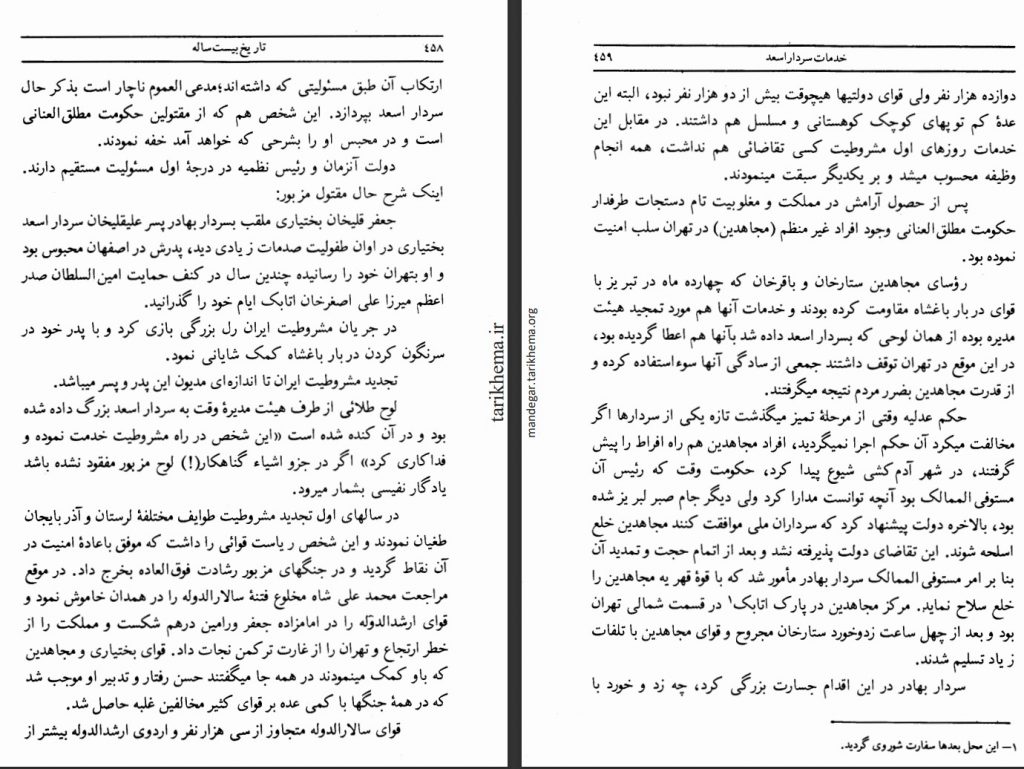 ٤٥٨
تاریخ بیست ساله
ارتکاب آن طبق مسئولیتی که داشته اند؛مدعی العموم ناچار است بذکر حال
سردار اسعد بپردازد. این شخص هم که از مقتولین حکومت مطلق العنانی
است و در محبس او را بشرحی که خواهد آمد خفه نمودند.
دولت آنزمان و رئیس نظمیه در درجهٔ اول مسئولیت مستقیم دارند.
اینک شرح حال مقتول مزبور:
جعفر قلیخان بختیاری ملقب بسردار بهادر پسر علیقلیخان سردار اسعد
بختیاری در اوان طفولیت صدمات زیادی دید، پدرش در اصفهان محبوس بود
و او بتهران خود را رسانیده چندین سال در کنف حمایت امین السلطان صدر
اعظم میرزا علی اصغرخان اتابک ایام خود را گذرانید.
در جریان مشروطیت ایران رل بزرگی بازی کرد و با پدر خود در
سرنگون کردن دربار باغشاه کمک شایانی نمود.
تجدید مشروطیت ایران تا اندازه ای مدیون این پدر و پسر میباشد.
لوح طلائی از طرف هیئت مدیرهٔ وقت به سردار اسعد بزرگ داده شده
بود و در آن کنده شده است «این شخص در راه مشروطیت خدمت نموده و
فداکاری کرد» اگر در جزو اشیاء گناهکار(!) لوح مزبور مفقود نشده باشد
یادگار نفیسی بشمار میرود.
در سالهای اول تجدید مشروطیت طوایف مختلفهٔ لرستان و آذربایجان
طغیان نمودند و این شخص ریاست قوائی را داشت که موفق باعادهٔ امنیت در
آن نقاط گردید و در جنگهای مزبور رشادت فوق العاده بخرج داد. در موقع
مراجعت محمد علی شاه مخلوع فتنهٔ سالارالدوله را در همدان خاموش نمود و
قوای ارشدالدوله را در امامزاده جعفر ورامین درهم شکست و مملکت را از
خطر ارتجاع و تهران را از غارت ترکمن نجات داد. قوای بختیاری و مجاهدین
که باو کمک مینمودند در همه جا میگفتند حسن رفتار و تدبیر او موجب شد
که در همهٔ جنگها با کمی عده بر قوای کثیر مخالفین غلبه حاصل شد.
قوای سالارالدوله متجاوز از سی هزار نفر و اردوی ارشدالدوله بیشتر از
tarikhema.ir
mandegar.tarikhema.org
خدمات سردار اسعد
٤٥٩
دوازده هزار نفر ولی قوای دولتیها هیچوقت بیش از دو هزار نفر نبود، البته این
عدهٔ کم توپهای کوچک کوهستانی و مسلسل هم داشتند. در مقابل این
خدمات روزهای اول مشروطیت کسی تقاضائی هم نداشت، همه انجام
وظیفه محسوب میشد و بر یکدیگر سبقت مینمودند.
پس از حصول آرامش در مملکت و مغلوبیت تام دستجات طرفدار
حکومت مطلق العنانی وجود افراد غیر منظم (مجاهدین) در تهران سلب امنیت
نموده بود.
رؤسای مجاهدین ستارخان و باقرخان که چهارده ماه در تبریز با
قوای دربار باغشاه مقاومت کرده بودند و خدمات آنها هم مورد تمجید هیئت
مدیره بوده از همان لوحی که بسردار اسعد داده شد بآنها هم اعطا گردیده بود،
در این موقع در تهران توقف داشتند جمعی از سادگی آنها سوءاستفاده کرده و
از قدرت مجاهدین بضرر مردم نتیجه میگرفتند.
حکم عدلیه وقتی از مرحلهٔ تمیز میگذشت تازه یکی از سردارها اگر
مخالفت میکرد آن حکم اجرا نمیگردید، افراد مجاهدین هم راه افراط را پیش
گرفتند، در شهر آدم کشی شیوع پیدا کرد، حکومت وقت که رئیس آن
مستوفی الممالک بود آنچه توانست مدارا کرد ولی دیگر جام صبر لبریز شده
بود، بالاخره دولت پیشنهاد کرد که سرداران ملی موافقت کنند مجاهدین خلع
اسلحه شوند. این تقاضای دولت پذیرفته نشد و بعد از اتمام حجت و تمدید آن
بنا بر امر مستوفی الممالک سردار بهادر مأمور شد که با قوهٔ قهریه مجاهدین را
خلع سلاح نماید. مرکز مجاهدین در پارک اتابک۱ در قسمت شمالی تهران
بود و بعد از چهل ساعت زدوخورد ستارخان مجروح و قوای مجاهدین با تلفات
زیاد تسلیم شدند.
سردار بهادر در این اقدام جسارت بزرگی کرد، چه زد و خورد با
۱– این محل بعدها سفارت شوروی گردید.